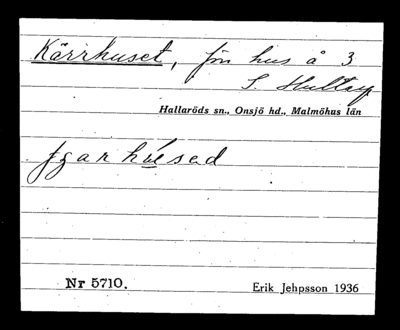 Kärrhuset, fin hus å 3
S. Hultarp
Hallaröds sn., Onsjö hd., Malmöhus län
tjarhúsed
Nr 5710.
Erik Jehpsson 1936